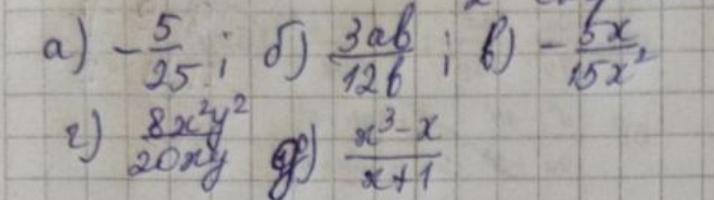 а) -5/25; б) 3ab/12b; в) -5x/15x²
г) 8x²y²/20xy д) x³-x/x+1